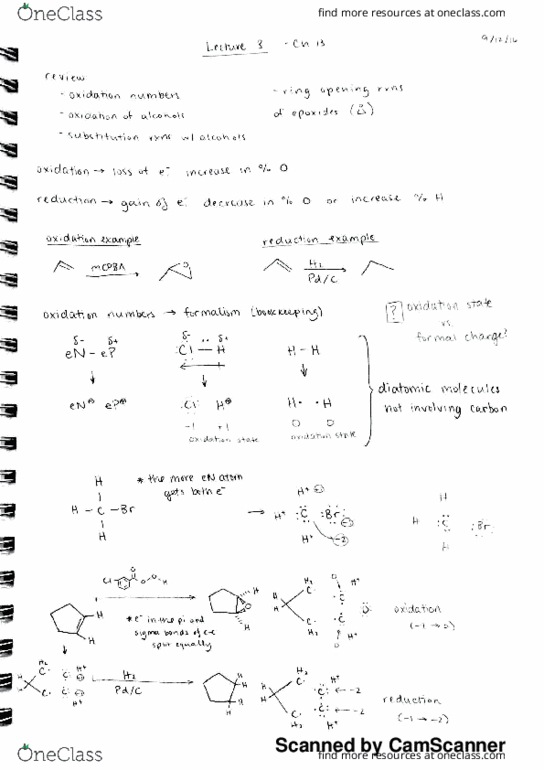 OneClass
find more resources at oneclass.com
Lecture 3 - Ch 13
9/12/16
review
- oxidation numbers
- oxidation of alcohols
- substitution rxns w/ alcohols
- ring opening rxns
of epoxides (
oxidation → loss of e⁻ increase in % O
reduction → gain of e⁻ decrease in % O or increase % H
oxidation example
reduction example
mCPBA
O
H₂
Pd/C
oxidation numbers → formalism (bookkeeping)
? oxidation state
vs.
formal charge?
δ- δ+
eN - eP
δ- δ+
Cl - H
H - H
eN⊖ eP⊕
Cl H⊕
H• •H
-1 +1
oxidation state
0 0
oxidation state
diatomic molecules
not involving carbon
H
H - C - Br
H
* the more eN atom
gets both e⁻
→
H⁺
H⁺ :C :Br:
H⁺ -2
H
H :C :Br:
H
Cl O O O H
H
H
* e⁻ in the pi and
sigma bonds of c-c
split equally
H
O
H
H₂ C• H⁺
C• H⁺
H₂
oxidation
(-1 → 0)
H₂ C• C H⁺
H C• C
H⁺
H₂
Pd/C
H
H
H
H
H₂ C• H⁺
C ← -2
C ← -2
C• H⁺
H₂
reduction
(-1 → -2)
Scanned by CamScanner
OneClass
find more resources at oneclass.com